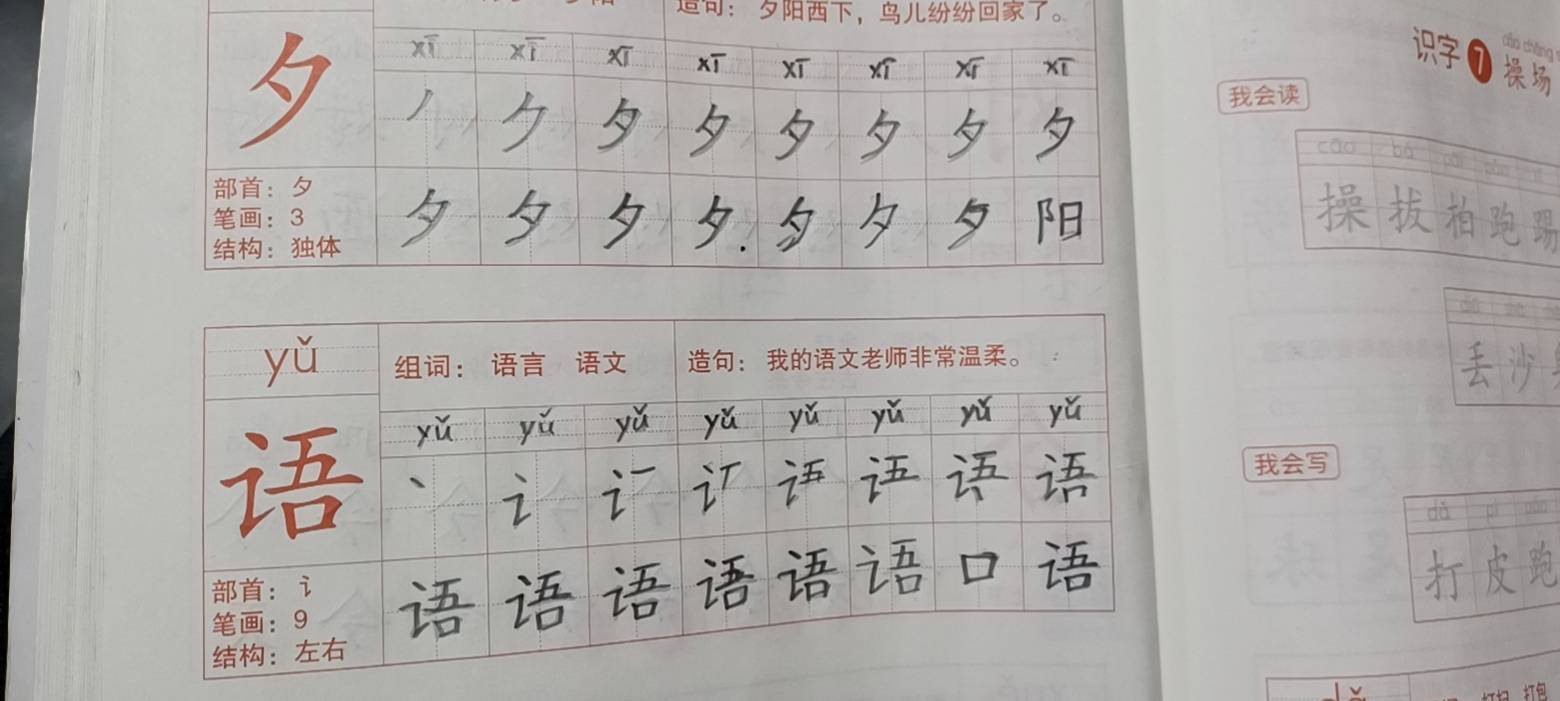 造句：夕阳西下，鸟儿纷纷回家了。
xī xī xī xī xī xī xī xī
夕
夕 夕 夕 夕 夕 夕
部首：夕
笔画：3
结构：独体
夕 夕 夕 夕 夕 夕 夕 阳
yǔ
组词：语言 语文
造句：我的语文老师非常温柔。
yǔ yǔ yǔ yǔ yǔ yǔ yǔ yǔ
语
丶 讠 语
部首：讠
笔画：9
结构：左右
语 语 语 语 语 语 口 语
识字 7 操场
cāo chǎng
我会读
cāo bá
操 拔 柏 跑 踢
丢 沙
我会写
dǎ pí
打 皮 跑
打包